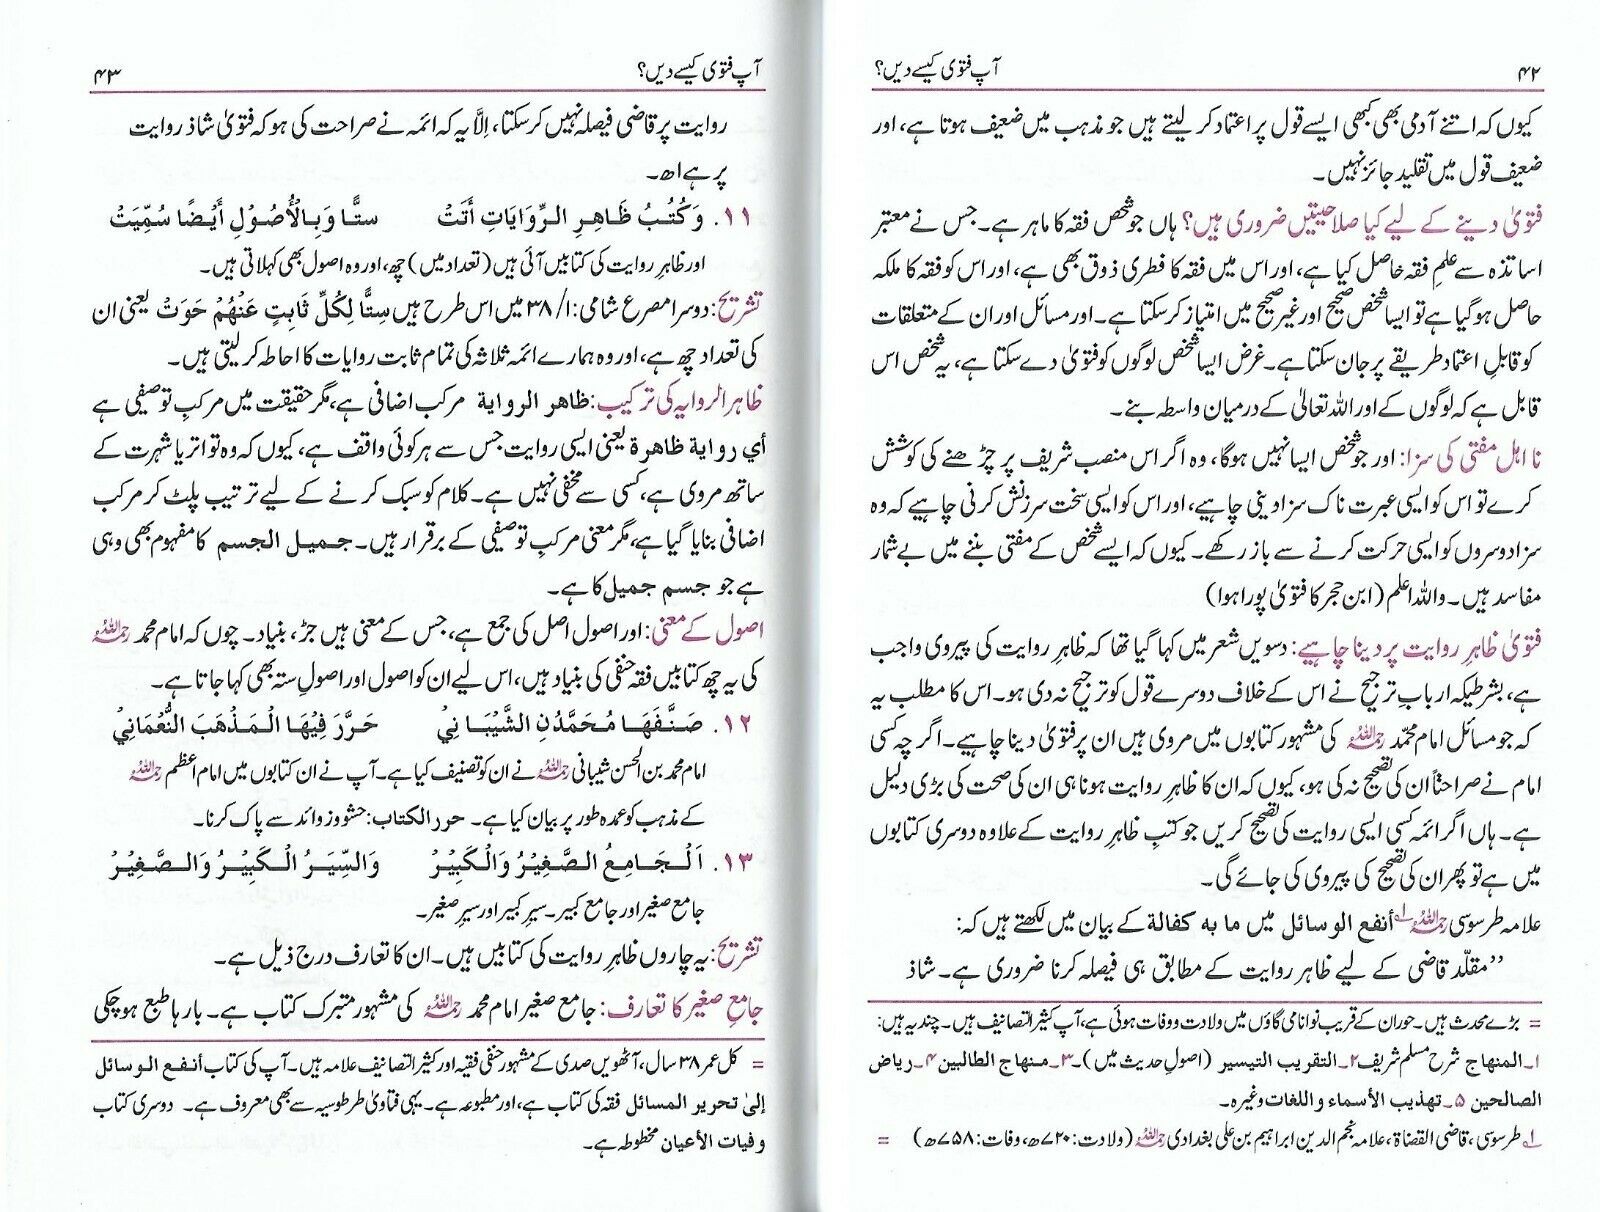 ۴۲ آپ فتویٰ کیسے دیں؟
کیوں کہ اتنے آدمی بھی کبھی ایسے قول پر اعتماد کر لیتے ہیں جو مذہب میں ضعیف ہوتا ہے، اور
ضعیف قول میں تقلید جائز نہیں۔
فتویٰ دینے کے لیے کیا صلاحیتیں ضروری ہیں؟ ہاں جو شخص فقہ کا ماہر ہے۔ جس نے معتبر
اساتذہ سے علمِ فقہ حاصل کیا ہے، اور اس میں فقہ کا فطری ذوق بھی ہے، اور اس کو فقہ کا ملکہ
حاصل ہوگیا ہے تو ایسا شخص صحیح اور غیر صحیح میں امتیاز کرسکتا ہے۔ اور مسائل اور ان کے متعلقات
کو قابلِ اعتماد طریقے پر جان سکتا ہے۔ غرض ایسا شخص لوگوں کو فتویٰ دے سکتا ہے، یہ شخص اس
قابل ہے کہ لوگوں کے اور اللہ تعالیٰ کے درمیان واسطہ بنے۔
نا اہل مفتی کی سزا: اور جو شخص ایسا نہیں ہوگا، وہ اگر اس منصب شریف پر چڑھنے کی کوشش
کرے تو اس کو ایسی عبرت ناک سزا دینی چاہیے، اور اس کو ایسی سخت سرزنش کرنی چاہیے کہ وہ
سزا دوسروں کو ایسی حرکت کرنے سے باز رکھے۔ کیوں کہ ایسے شخص کے مفتی بننے میں بے شمار
مفاسد ہیں۔ واللہ اعلم (ابن حجر کا فتویٰ پورا ہوا)
فتویٰ ظاہرِ روایت پر دینا چاہیے: دسویں شعر میں کہا گیا تھا کہ ظاہرِ روایت کی پیروی واجب
ہے، بشرطیکہ اربابِ ترجیح نے اس کے خلاف دوسرے قول کو ترجیح نہ دی ہو۔ اس کا مطلب یہ
کہ جو مسائل امام محمد رحمہ اللہ کی مشہور کتابوں میں مروی ہیں ان پر فتویٰ دینا چاہیے۔ اگر چہ کسی
امام نے صراحتاً ان کی تصحیح نہ کی ہو، کیوں کہ ان کا ظاہرِ روایت ہونا ہی ان کی صحت کی بڑی دلیل
ہے۔ ہاں اگر ائمہ کسی ایسی روایت کی تصحیح کریں جو کتبِ ظاہرِ روایت کے علاوہ دوسری کتابوں
میں ہے تو پھر ان کی تصحیح کی پیروی کی جائے گی۔
علامہ طرسوسی رحمہ اللہ لہ أنفع الوسائل میں ما به كفالة کے بیان میں لکھتے ہیں کہ:
”مقلّد قاضی کے لیے ظاہر روایت کے مطابق ہی فیصلہ کرنا ضروری ہے۔ شاذ
= بڑے محدث ہیں۔ حوران کے قریب نوا نامی گاؤں میں ولادت و وفات ہوئی ہے، آپ کثیر التصانیف ہیں۔ چند یہ ہیں:
۱۔ المنهاج شرح مسلم شریف ۲۔ التقريب التيسير (اصولِ حدیث میں)۔ ۳۔ منهاج الطالبين ۴۔ رياض
الصالحين ۵۔ تهذيب الأسماء واللغات وغیرہ۔
لہ طرسوسی، قاضی القضاۃ، علامہ نجم الدین ابراہیم بن علی بغدادی رحمہ اللہ (ولادت: ۷۲۰ھ، وفات: ۷۵۸ھ) =
آپ فتویٰ کیسے دیں؟ ۴۳
روایت پر قاضی فیصلہ نہیں کرسکتا، اِلَّا یہ کہ ائمہ نے صراحت کی ہو کہ فتویٰ شاذ روایت
پر ہے اھ۔
۱۱. وَكُتُبُ ظَاهِرِ الرِّوَايَاتِ أَتَتْ ستًّا وَبِالْأُصُوْلِ أَيْضًا سُمِّيَتْ
اور ظاہرِ روایت کی کتابیں آئی ہیں (تعداد میں) چھ، اور وہ اصول بھی کہلاتی ہیں۔
تشریح: دوسرا مصرع شامی: ۱/ ۳۸ میں اس طرح ہیں سِتًّا لِكُلِّ ثَابِتٍ عَنْهُمْ حَوَتْ یعنی ان
کی تعداد چھ ہے، اور وہ ہمارے ائمہ ثلاثہ کی تمام ثابت روایات کا احاطہ کرلیتی ہیں۔
ظاہر الروایہ کی ترکیب: ظاهر الرواية مرکبِ اضافی ہے، مگر حقیقت میں مرکبِ توصیفی ہے
أي رواية ظاهرة یعنی ایسی روایت جس سے ہر کوئی واقف ہے، کیوں کہ وہ تواتر یا شہرت کے
ساتھ مروی ہے، کسی سے مخفی نہیں ہے۔ کلام کو سبک کرنے کے لیے ترتیب پلٹ کر مرکب
اضافی بنایا گیا ہے، مگر معنی مرکبِ توصیفی کے برقرار ہیں۔ جميل الجسم کا مفہوم بھی وہی
ہے جو جسم جميل کا ہے۔
اصول کے معنی: اور اصول اصل کی جمع ہے، جس کے معنی ہیں جڑ، بنیاد۔ چوں کہ امام محمد رحمہ اللہ
کی یہ چھ کتابیں فقہ حنفی کی بنیاد ہیں، اس لیے ان کو اصول اور اصولِ ستہ بھی کہا جاتا ہے۔
۱۲. صَنَّفَهَا مُحَمَّدُنِ الشَّيْبَانِيْ حَرَّرَ فِيْهَا الْمَذْهَبَ النُّعْمَانِيْ
امام محمد بن الحسن شیبانی رحمہ اللہ نے ان کو تصنیف کیا ہے۔ آپ نے ان کتابوں میں امام اعظم رحمہ اللہ
کے مذہب کو عمدہ طور پر بیان کیا ہے۔ حرر الكتاب: حشو و زوائد سے پاک کرنا۔
۱۳. اَلْجَامِعُ الصَّغِيْرُ وَالْكَبِيْرُ وَالسِّيَرُ الْكَبِيْرُ وَالصَّغِيْرُ
جامع صغیر اور جامع کبیر۔ سیرِ کبیر اور سیرِ صغیر۔
تشریح: یہ چاروں ظاہرِ روایت کی کتابیں ہیں۔ ان کا تعارف درج ذیل ہے۔
جامعِ صغیر کا تعارف: جامع صغیر امام محمد رحمہ اللہ کی مشہور متبرک کتاب ہے۔ بارہا طبع ہوچکی
= کل عمر ۳۸ سال، آٹھویں صدی کے مشہور حنفی فقیہ اور کثیر التصانیف علامہ ہیں۔ آپ کی کتاب أنفع الوسائل
إلى تحرير المسائل فقہ کی کتاب ہے، اور مطبوعہ ہے۔ یہی فتاویٰ طرطوسیہ سے بھی معروف ہے۔ دوسری کتاب
وفيات الأعيان مخطوطہ ہے۔